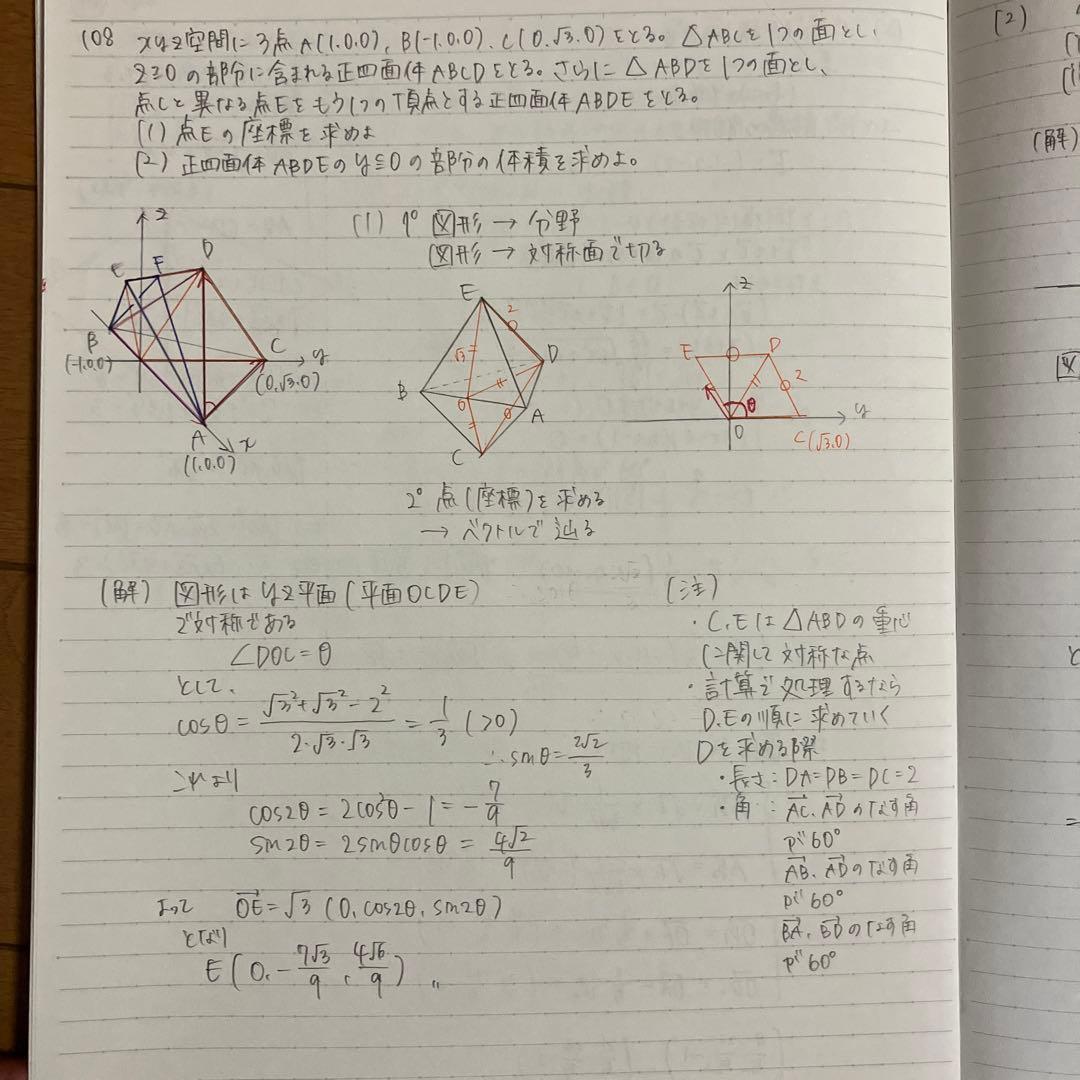 108 xyz空間に3点A(1.0.0), B(-1.0.0). C(0.√3.0)をとる。△ABCを1つの面とし、
z≧0の部分に含まれる正四面体ABCDをとる。さらに△ABDを1つの面とし、
点Cと異なる点Eをもう1つの頂点とする正四面体ABDEをとる。
(1) 点Eの座標を求めよ
(2) 正四面体ABDEのy≦0の部分の体積を求めよ。
(1) 1° 図形 → 分野
図形 → 対称面で切る
z
E F D
B
(-1.0.0)
C y
(0.√3.0)
A x
(1.0.0)
E
2
√3
D
B
O
θ
A
C
z
E D
2
θ
O
y
C(√3.0)
2° 点(座標)を求める
→ ベクトルで辿る
(解) 図形はyz平面(平面OCDE)
で対称である
∠DOC = θ
として、
cosθ = (√3² + √3² - 2²)/(2・√3・√3) = 1/3 (>0)
∴ sinθ = 2√2/3
これより
cos2θ = 2cos²θ - 1 = -7/9
sin2θ = 2sinθcosθ = 4√2/9
よって OE→ = √3 (0, cos2θ, sin2θ)
となり
E(0. -7√3/9, 4√6/9) 〃
(注)
・C,Eは△ABDの重心
に関して対称な点
・計算で処理するなら
D.Eの順に求めていく
Dを求める際
・長さ: DA=DB=DC=2
・角 : AC→. AD→のなす角
が60°
AB→. AD→のなす角
が60°
BA→. BD→のなす角
が60°
(2)
(解)